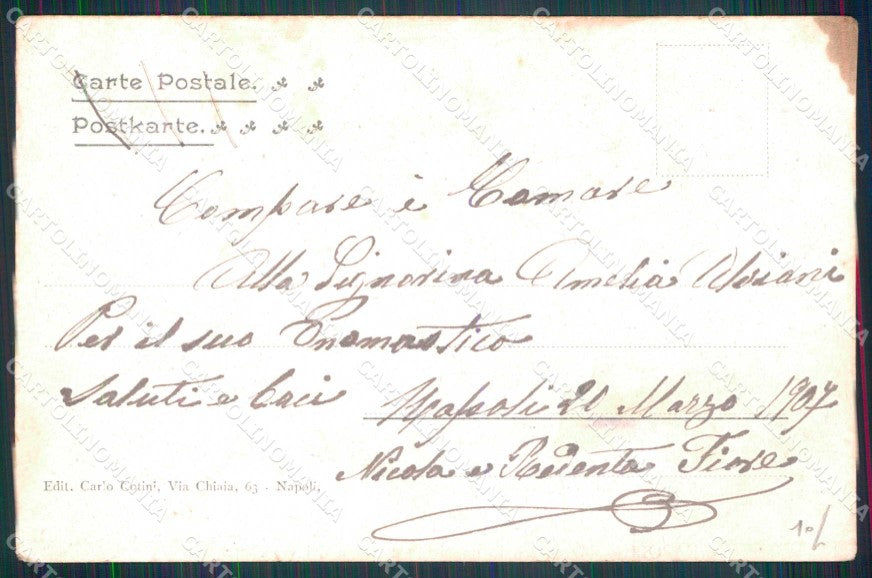 Carte Postale.
Postkarte.
Compare è Comare
Alla Signorina Amelia Alviani
Per il suo Onomastico
Saluti e baci Napoli 20 Marzo 1907
Nicola e Redenta Fiore
Edit. Carlo Cotini, Via Chiaia, 63 - Napoli,
CARTOLINOMANIA